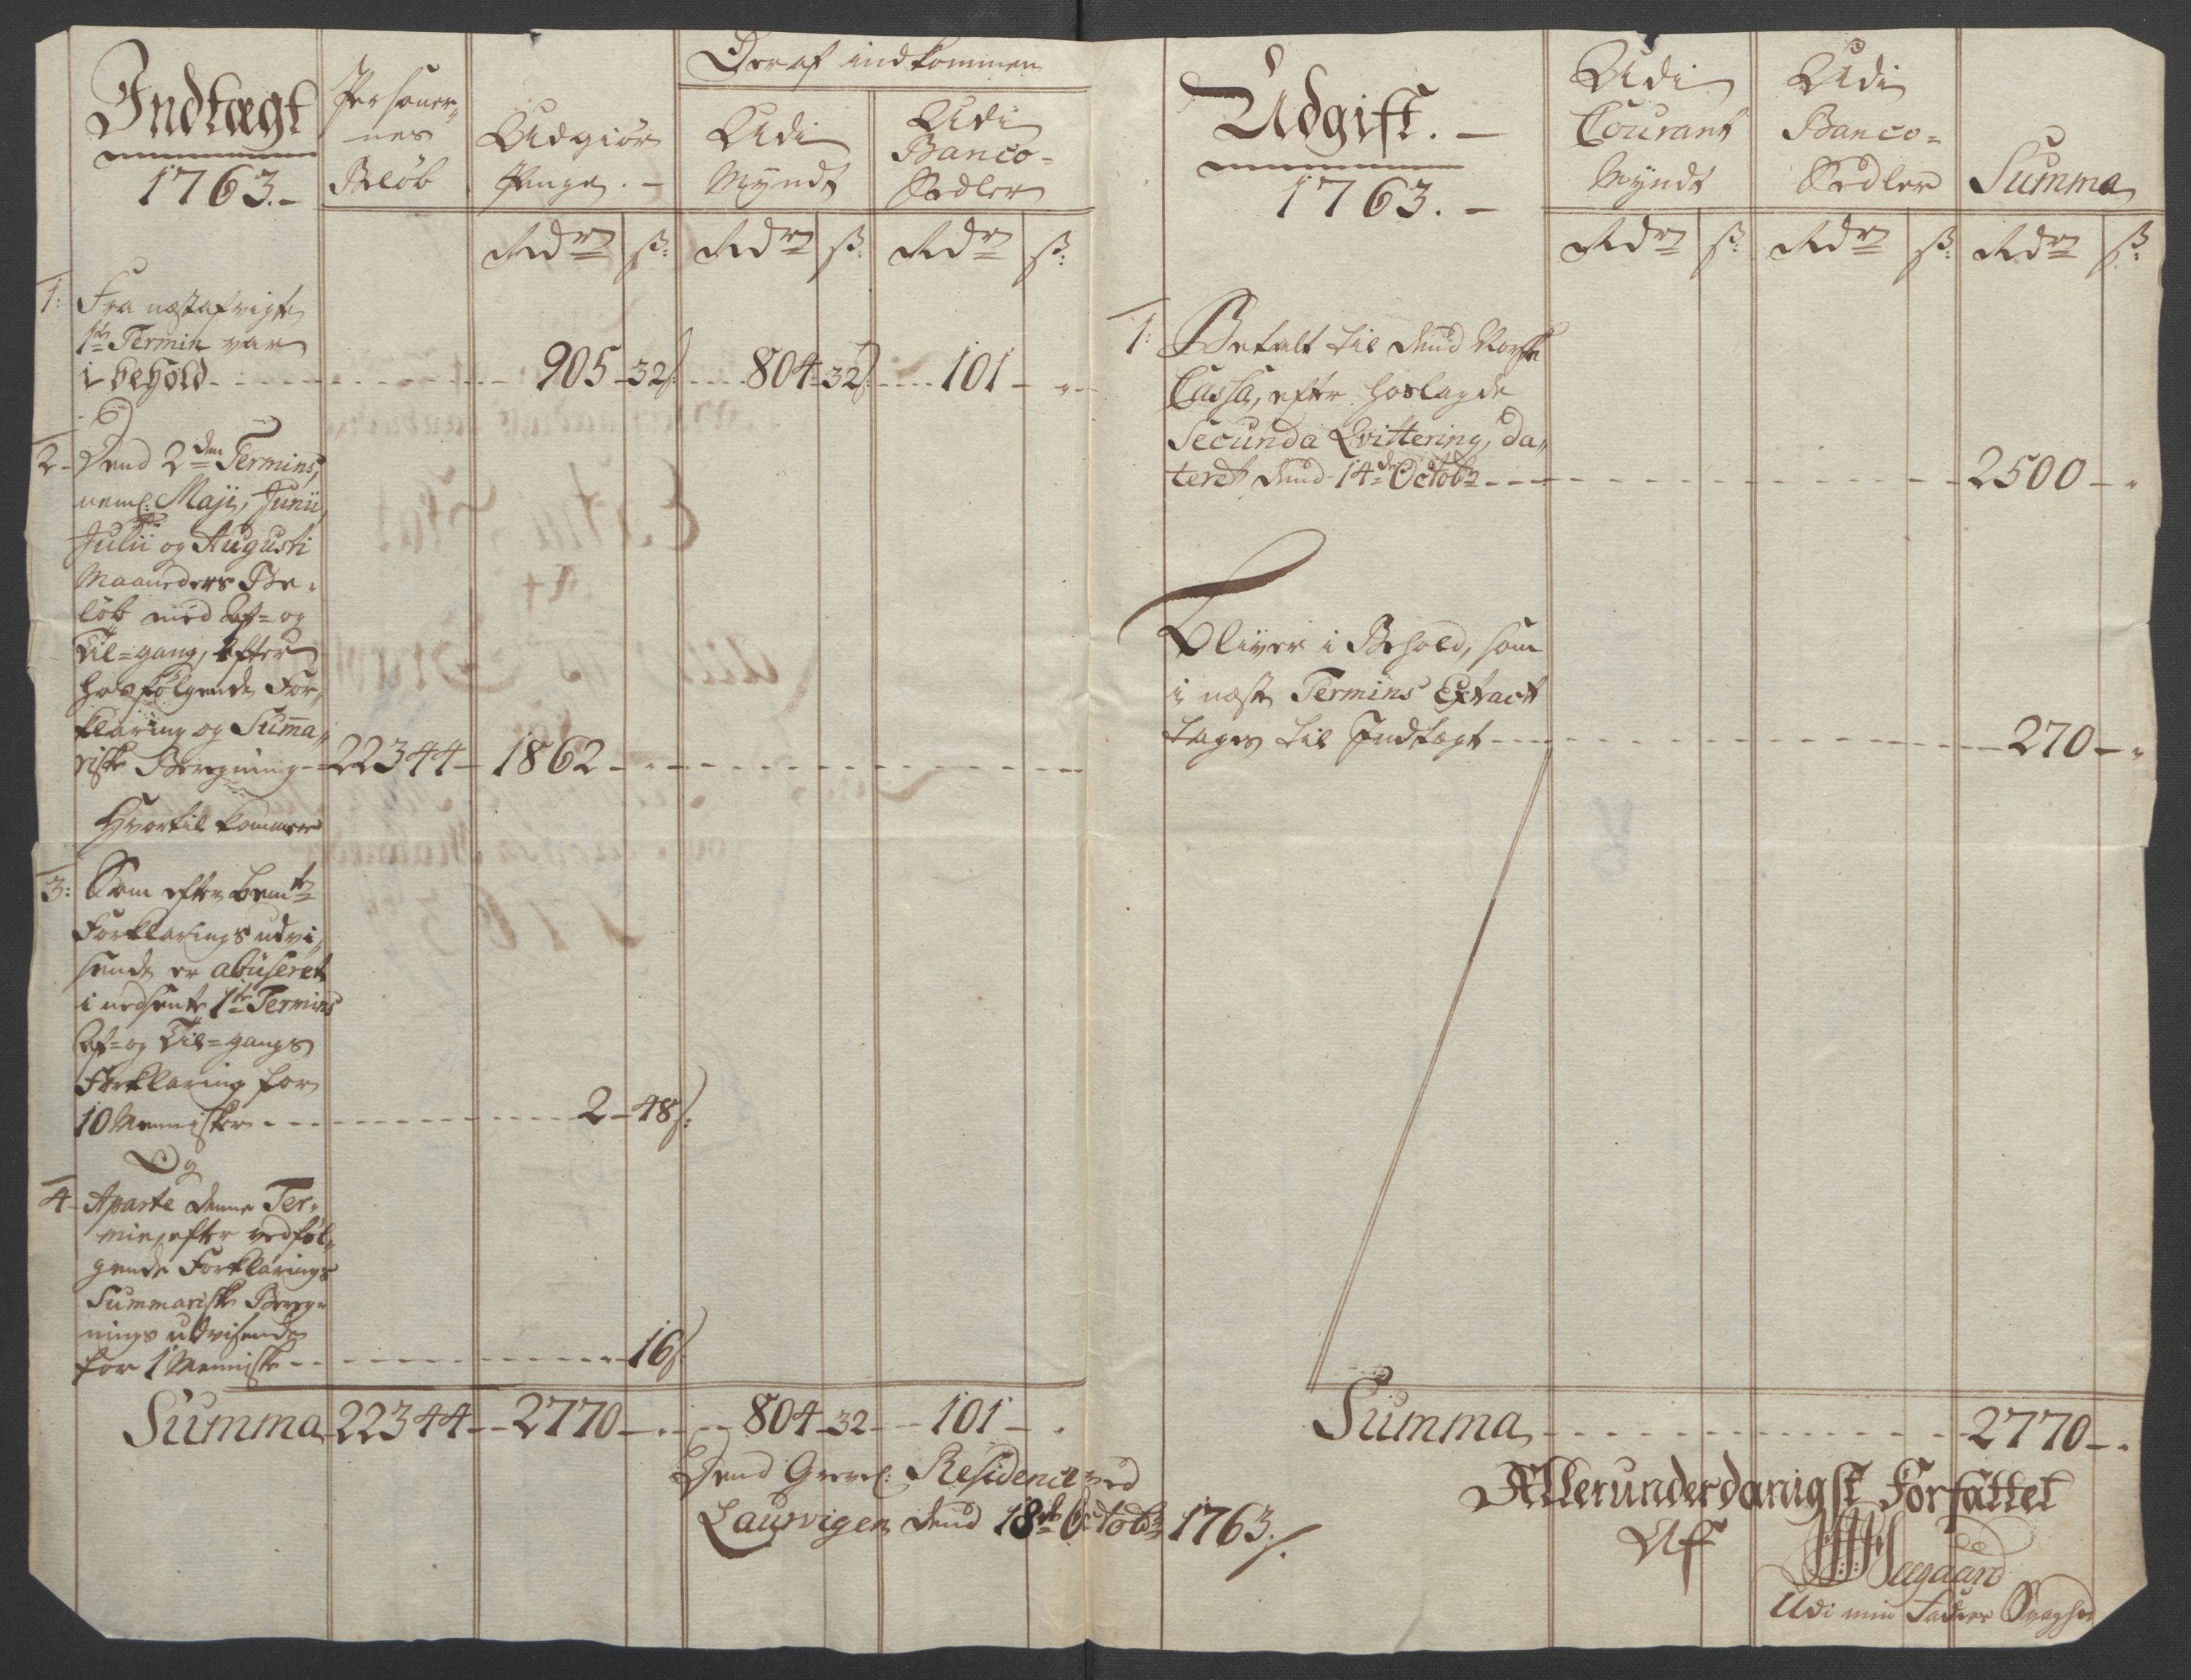 Indtægt
1763.-
Personer„
nes
Beløb
Udgiør
Penge. -
Deraf indkommen
Udi
Myndt
Udi
Banco=
Sedler
Rdr ß: Rdr ß: Rdr ß:
1: Fra næstafvigte
1te Termin var
i behold - 905 - 32ß: - 804 - 32ß: - 101 - "
2 - Dend 2den Termins,
neml: Maji, Junii
Julii og Augusti
Maaneders Be=
løb med Af= og
Til=gang, efter
hosfølgende For„
klaring og Suma„
riske Beregning - 22344 - 1862 - "
Hvortil kommer
3: Som efter bemte
Forklarings udvi„
sende er abuseret
i nedsente 1te Termins
Af= og Til=gangs
Forklaring for
10 Mennisker - 2 - 48ß:
Og
4 - Aparte denne Ter„
min, efter vedføl„
gende Forklarings
Summariske Bereg„
nings udvisende
for 1 Menniske - 16ß:
Summa 22344 - 2770 - " - 804 - 32 - 101 - "
Dend Grevel: Residence ved
Laurvigen dend 18de Octobr 1763 ./.
Udgift. -
1763. -
Udi
Courant
Myndt
Udi
Banco=
Sedler
Summa
Rdr ß: Rdr ß: Rdr ß:
1: Betalt til dend Norske
Cassa, efter hoslagde
Secunda Qvittering, da„
teret dend 14de Octobr - 2500 - "
Bliver i Behold, som
i næste Termins Extract
tages til Indtægt - 270 - "
Summa - 2770 - "
Allerunderdanigst Forfattet
Af
Seegaard
Udi min Faders Svaghed